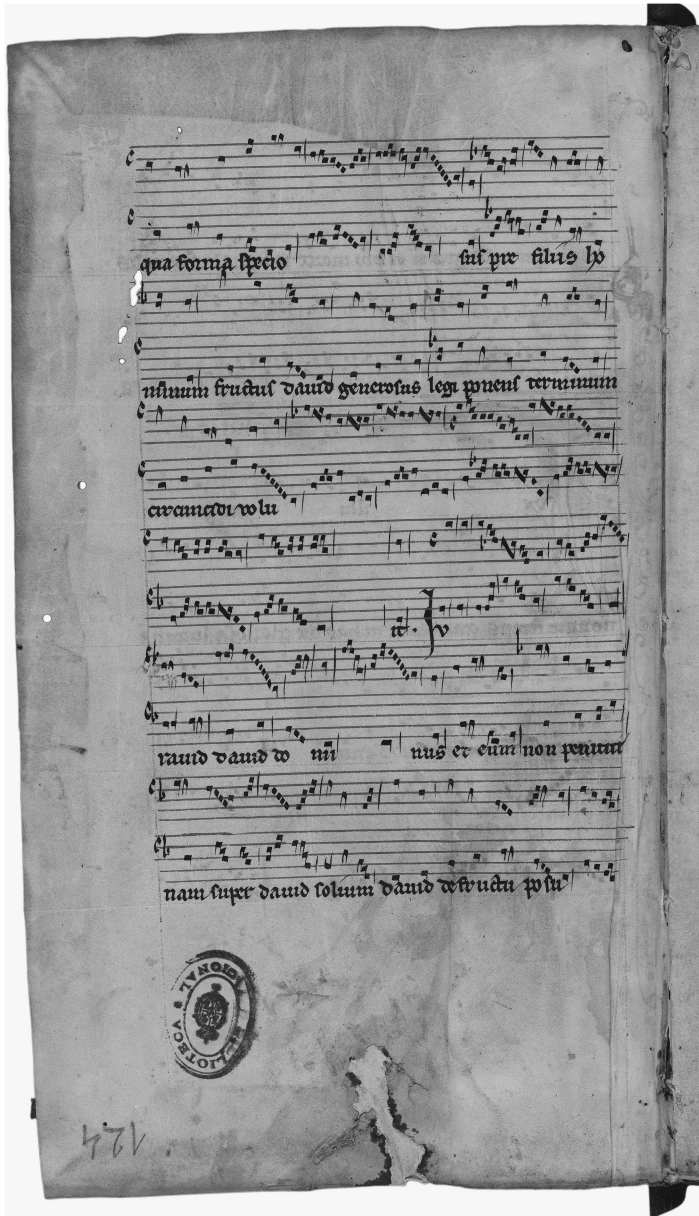 qua forma specio sus pre filius ho
minum fructus david generosus legi ponens terminum
circumcidi volu
it. v
iravid david do mi nus et eum non penitui
nam super david solium david de fructu posu
BIBLIOTECA NACIONAL
124